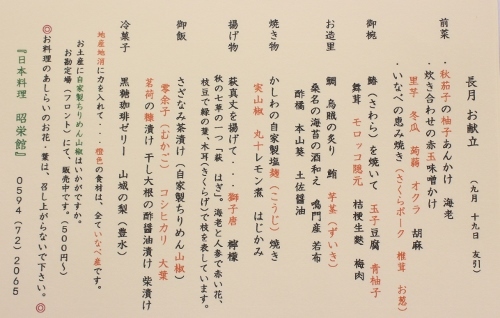 長月 お献立 （九月 十九日 友引）
前菜 ・秋茄子の柚子あんかけ 海老
・炊き合わせの赤玉味噌かけ
里芋 冬瓜 蒟蒻 オクラ 胡麻
・いなべの恵み焼き（さくらポーク 椎茸 お葱）
御椀 鰆（さわら）を焼いて 玉子豆腐 青柚子
舞茸 モロッコ隠元 桔梗生麩 梅肉
お造里 鯛 烏賊の炙り 鮪 芋茎（ずいき）
桑名の海苔の酒和え 鳴門産 若布
酢橘 本山葵 土佐醤油
焼き物 かしわの自家製塩麹（こうじ）焼き
実山椒 丸十レモン煮 はじかみ
揚げ物 萩真丈を揚げて・・・獅子唐 檸檬
秋の七草の一つ「萩 はぎ」。海老と人参で赤い花、
枝豆で緑の葉、木耳（きくらげ）で枝を表しています。
御飯 さざなみ茶漬け（自家製ちりめん山椒）
零余子（むかご） コシヒカリ 大葉
茗荷の糠漬け 干し大根の酢醤油漬け 柴漬け
冷菓子 黒糖珈琲ゼリー 山城の梨（豊水）
地産地消に力を入れて・・・橙色の食材は、全ていなべ産です。
お土産に自家製ちりめん山椒はいかがですか。
お勘定場（フロント）にて、販売中です。（５００円～）
◎お料理のあしらいのお花・葉は、召し上がらないで下さい。◎
『日本料理 昭栄館』 ０５９４（７２）２０６５